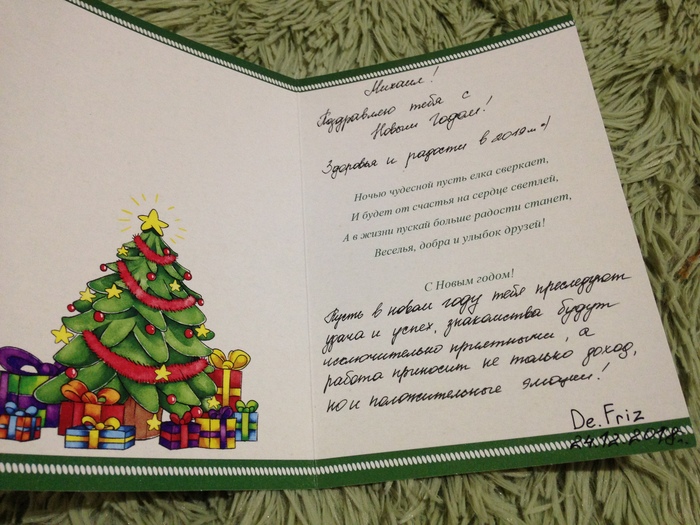 Михаил!
Поздравляю тебя с
Новым Годом!
Здоровья и радости в 2019м!
Ночью чудесной пусть елка сверкает,
И будет от счастья на сердце светлей,
А в жизни пускай больше радости станет,
Веселья, добра и улыбок друзей!
С Новым годом!
Пусть в новом году тебя преследуют
удача и успех, знакомства будут
исключительно приятными, а
работа приносит не только доход,
но и положительные эмоции!
De.Friz
24.12.2018г.